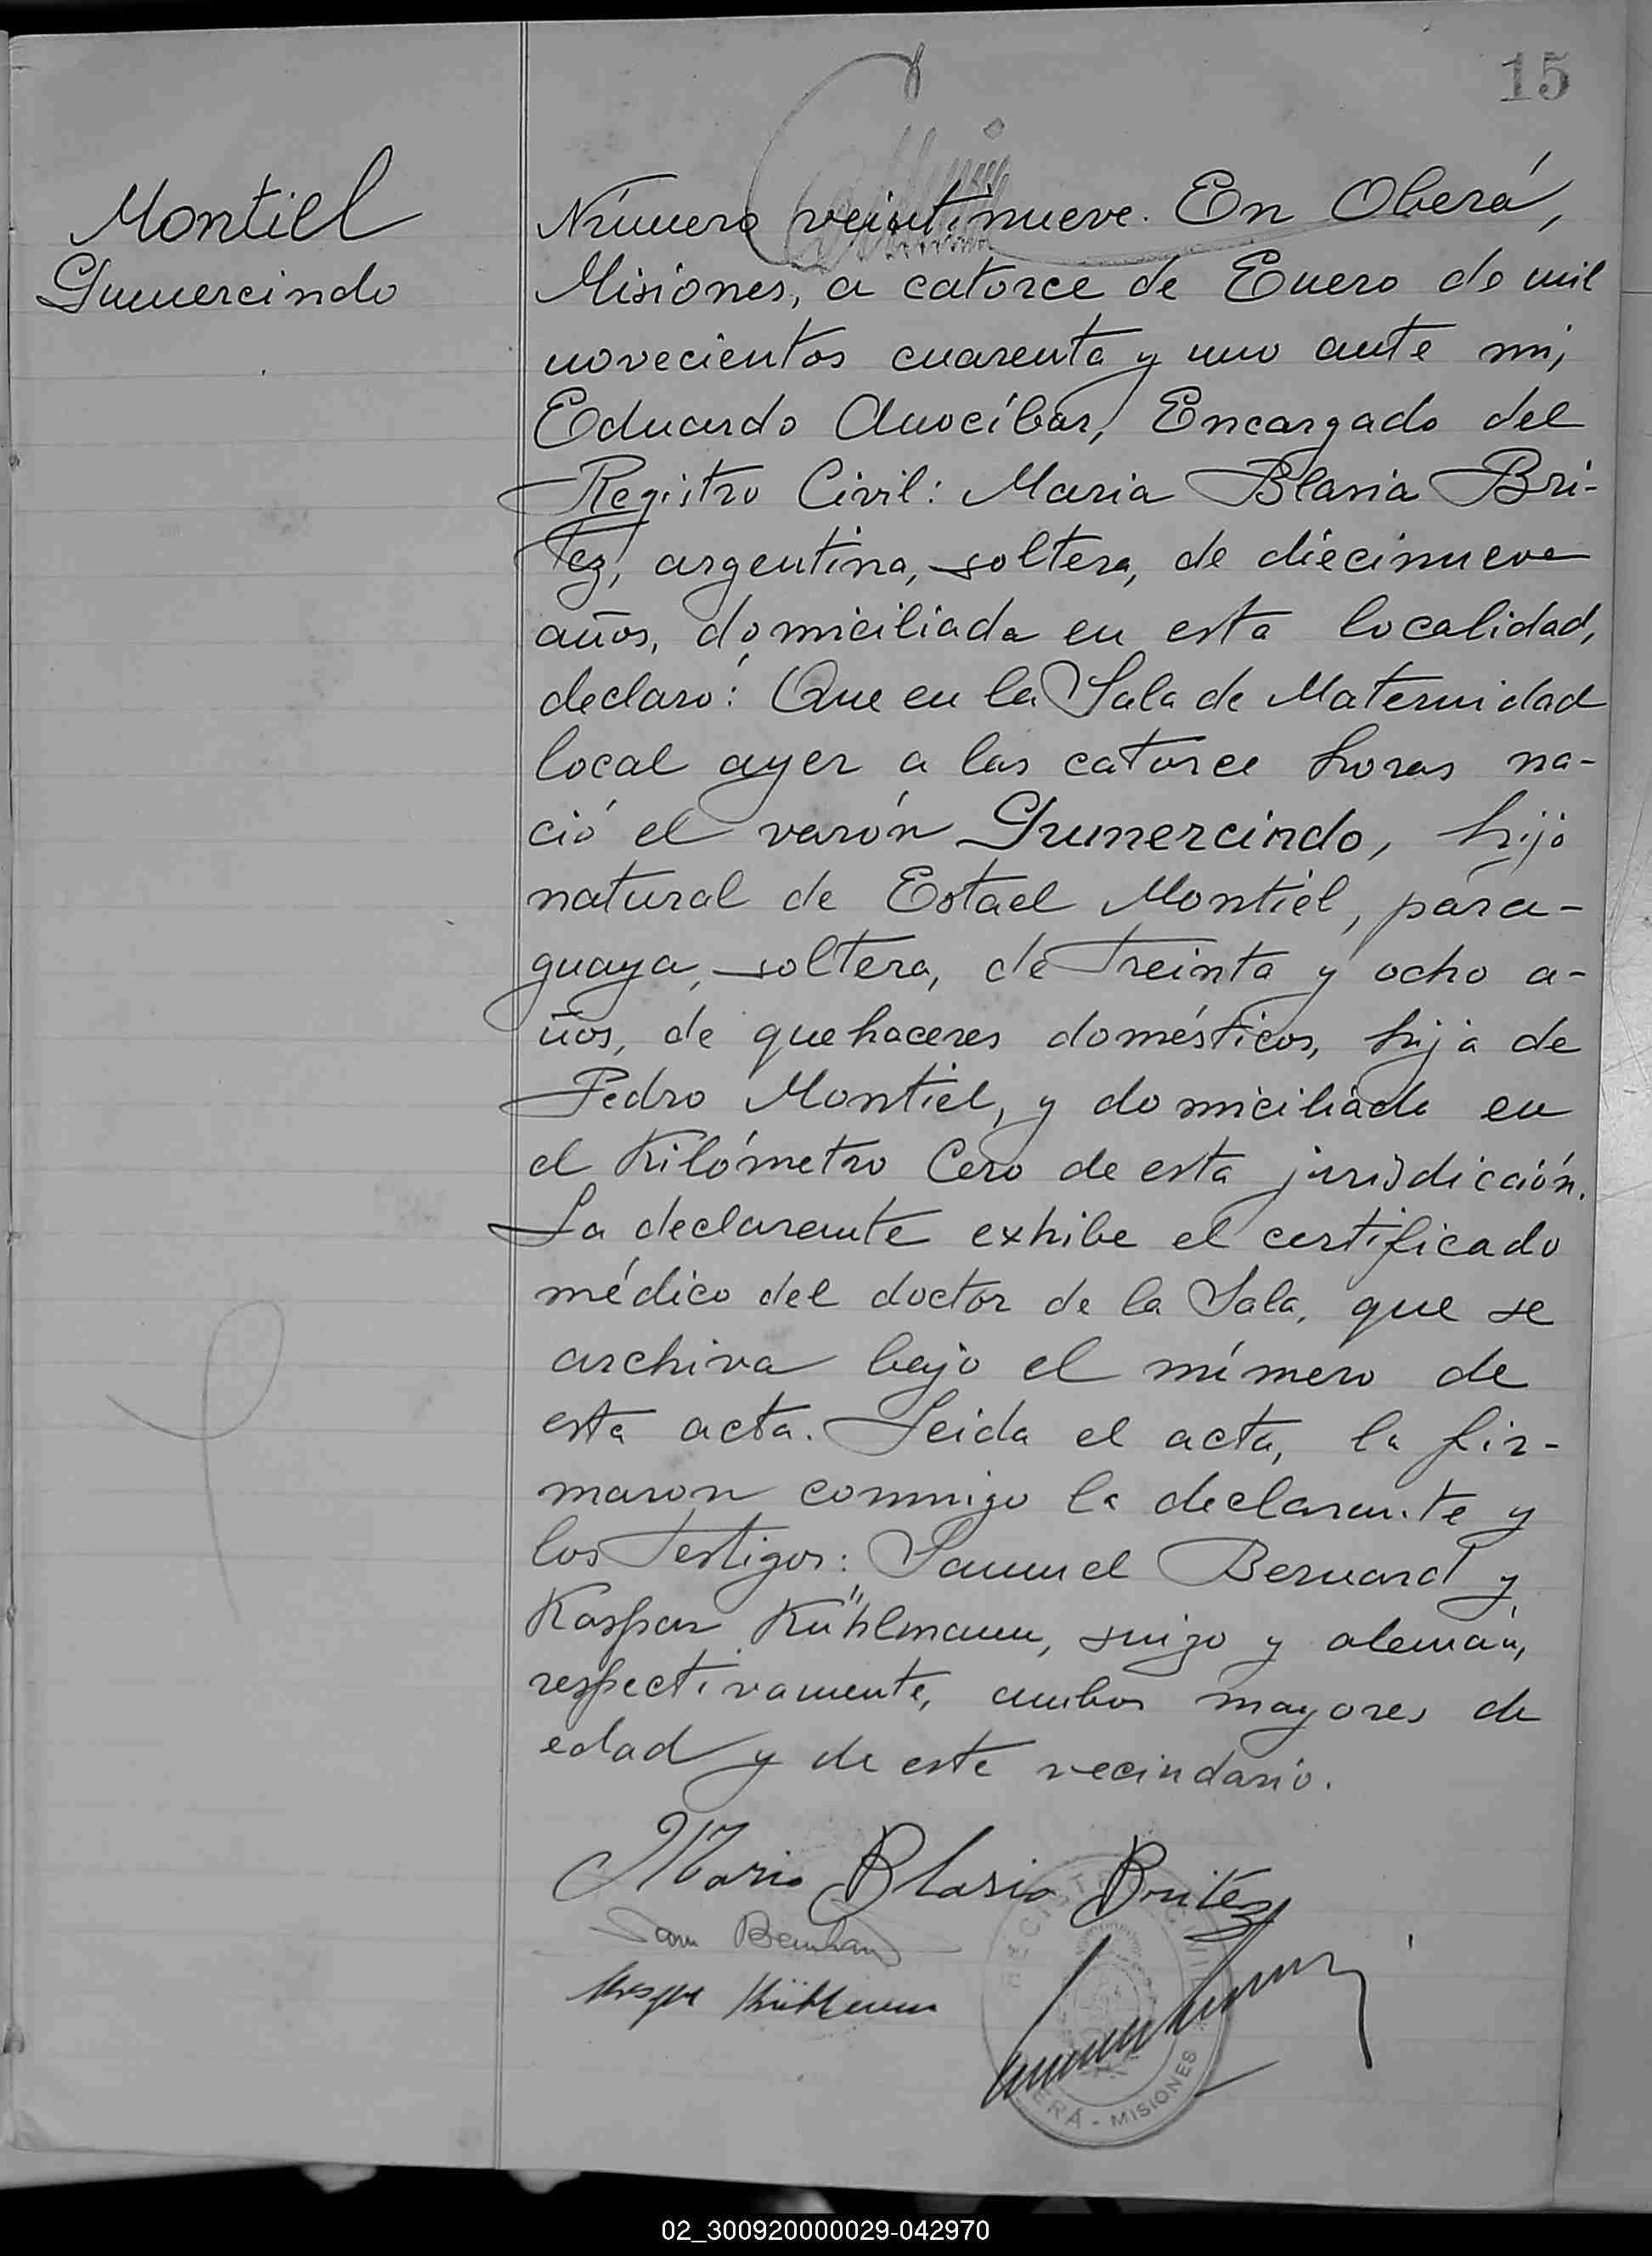 15
Montiel
Gumercindo
Número veintinueve. En Oberá,
Misiones, a catorce de Enero de mil
novecientos cuarenta y uno ante mi,
Eduardo Anocíbar, Encargado del
Registro Civil: Maria Blasia Bri-
tez, argentina, soltera, de diecinueve
años, domiciliada en esta localidad,
declaró: Que en la Sala de Maternidad
local ayer a las catorce horas na-
ció el varón Gumercindo, hijo
natural de Estael Montiel, para-
guaya, soltera, de treinta y ocho a-
ños, de quehaceres domésticos, hija de
Pedro Montiel, y domiciliada en
el Kilómetro Cero de esta jurisdicción.
La declarante exhibe el certificado
médico del doctor de la Sala, que se
archiva bajo el número de
esta acta. Leida el acta, la fir-
maron conmigo la declarante y
los testigos: Samuel Bernard y
Kaspar Kühlmann, suizo y alemán,
respectivamente, ambos mayores de
edad y de este vecindario.
Maria Blasia Britez
REGISTRO CIVIL
OBERÁ - MISIONES
02_300920000029-042970